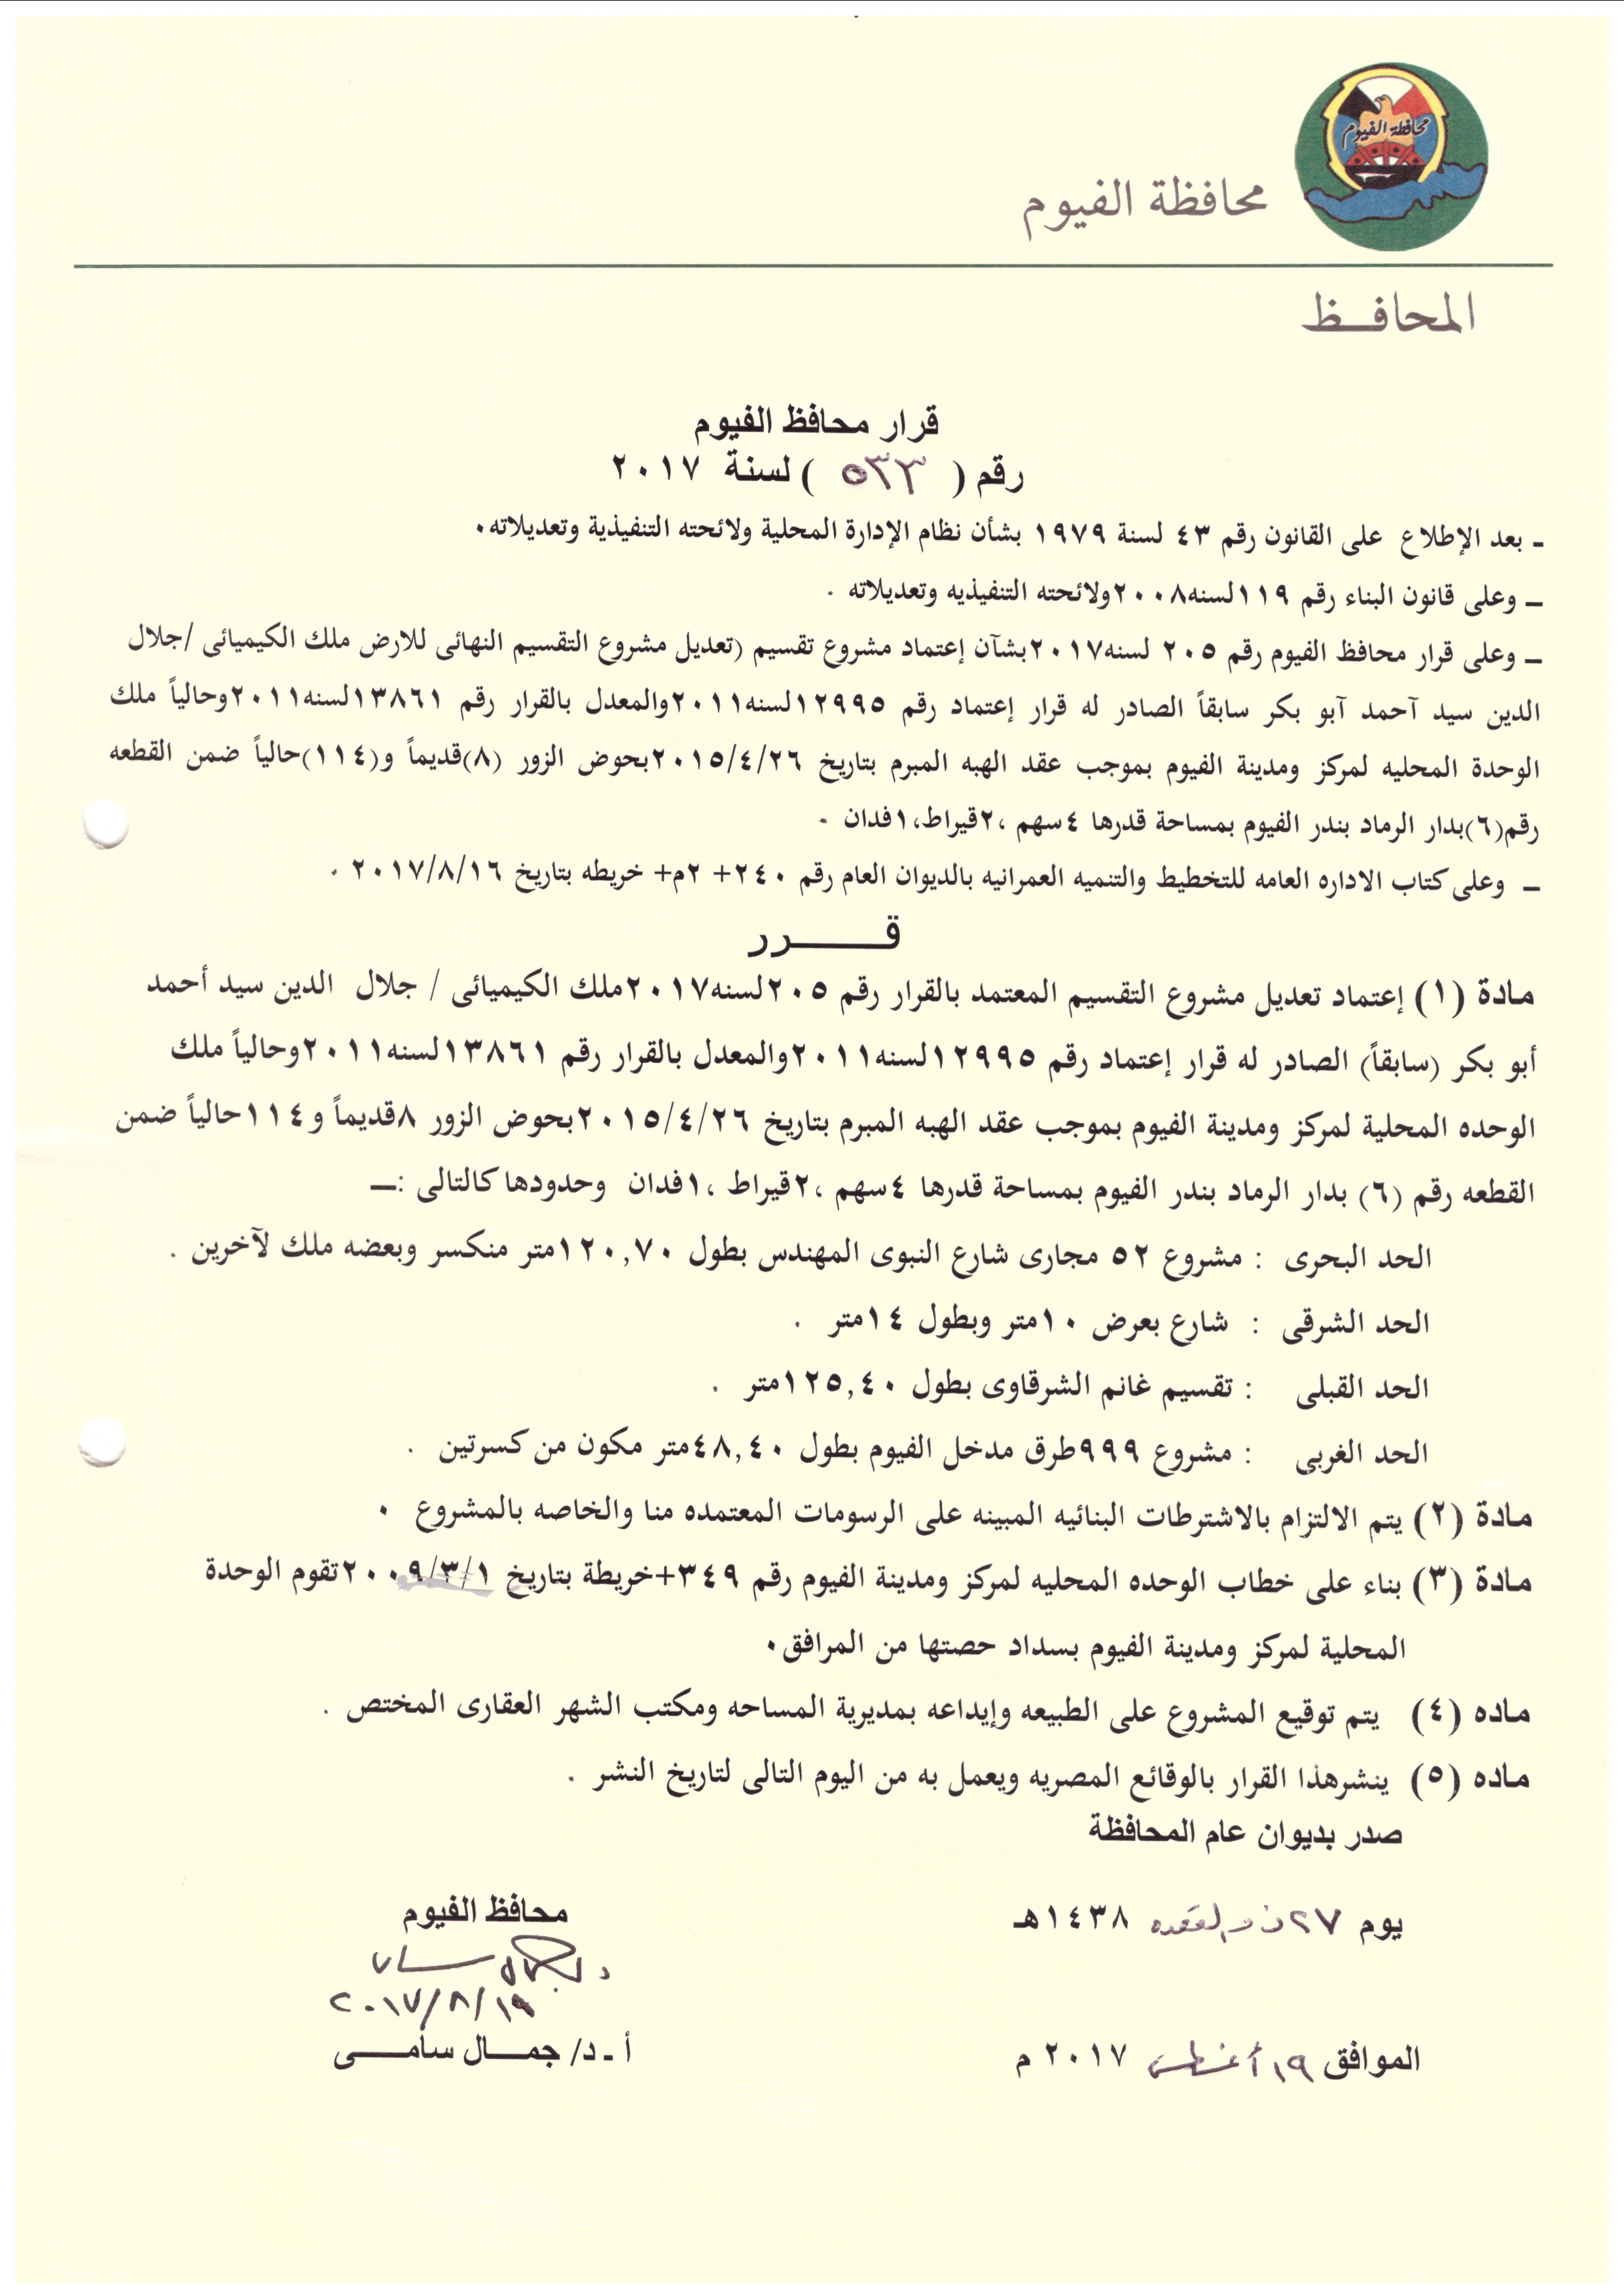 محافظة الفيوم
محافظة الفيوم
المحافـــظ
قرار محافظ الفيوم
رقم ( ٥٣٣ ) لسنة ٢٠١٧
ـ بعد الإطلاع على القانون رقم ٤٣ لسنة ١٩٧٩ بشأن نظام الإدارة المحلية ولائحته التنفيذية وتعديلاته٠
ــ وعلى قانون البناء رقم ١١٩لسنه٢٠٠٨ولائحته التنفيذيه وتعديلاته .
ــ وعلى قرار محافظ الفيوم رقم ٢٠٥ لسنه٢٠١٧بشآن إعتماد مشروع تقسيم (تعديل مشروع التقسيم النهائى للارض ملك الكيميائى /جلال
الدين سيد آحمد آبو بكر سابقاً الصادر له قرار إعتماد رقم ١٢٩٩٥لسنه٢٠١١والمعدل بالقرار رقم ١٣٨٦١لسنه٢٠١١وحالياً ملك
الوحدة المحليه لمركز ومدينة الفيوم بموجب عقد الهبه المبرم بتاريخ ٢٠١٥/٤/٢٦بحوض الزور (٨)قديماً و(١١٤)حالياً ضمن القطعه
رقم(٦)بدار الرماد بندر الفيوم بمساحة قدرها ٤سهم ،٢قيراط،١فدان .
ــ وعلى كتاب الاداره العامه للتخطيط والتنميه العمرانيه بالديوان العام رقم ٢٤٠+ ٢م+ خريطه بتاريخ ٢٠١٧/٨/١٦ .
قــــــــرر
مادة (١) إعتماد تعديل مشروع التقسيم المعتمد بالقرار رقم ٢٠٥لسنه٢٠١٧ملك الكيميائى / جلال الدين سيد أحمد
أبو بكر (سابقاً) الصادر له قرار إعتماد رقم ١٢٩٩٥لسنه٢٠١١والمعدل بالقرار رقم ١٣٨٦١لسنه٢٠١١وحالياً ملك
الوحده المحلية لمركز ومدينة الفيوم بموجب عقد الهبه المبرم بتاريخ ٢٠١٥/٤/٢٦بحوض الزور ٨قديماً و١١٤حالياً ضمن
القطعه رقم (٦) بدار الرماد بندر الفيوم بمساحة قدرها ٤سهم ،٢قيراط ،١فدان وحدودها كالتالى :ــ
الحد البحرى : مشروع ٥٢ مجارى شارع النبوى المهندس بطول ١٢٠,٧٠متر منكسر وبعضه ملك لآخرين .
الحد الشرقى : شارع بعرض ١٠متر وبطول ١٤متر .
الحد القبلى : تقسيم غانم الشرقاوى بطول ١٢٥,٤٠متر .
الحد الغربى : مشروع ٩٩٩طرق مدخل الفيوم بطول ٤٨,٤٠متر مكون من كسرتين .
مادة (٢) يتم الالتزام بالاشترطات البنائيه المبينه على الرسومات المعتمده منا والخاصه بالمشروع ٠
مادة (٣) بناء على خطاب الوحده المحليه لمركز ومدينة الفيوم رقم ٣٤٩+خريطة بتاريخ ٢٠٠٩/٣/١تقوم الوحدة
المحلية لمركز ومدينة الفيوم بسداد حصتها من المرافق٠
ماده (٤) يتم توقيع المشروع على الطبيعه وإيداعه بمديرية المساحه ومكتب الشهر العقارى المختص .
ماده (٥) ينشرهذا القرار بالوقائع المصريه ويعمل به من اليوم التالى لتاريخ النشر .
صدر بديوان عام المحافظة
يوم ٢٧ ذو القعده ١٤٣٨هـ
الموافق ١٩ أغسطس ٢٠١٧ م
محافظ الفيوم
٢٠١٧/٨/١٩
أ ـ د/ جمـــال سامــــى